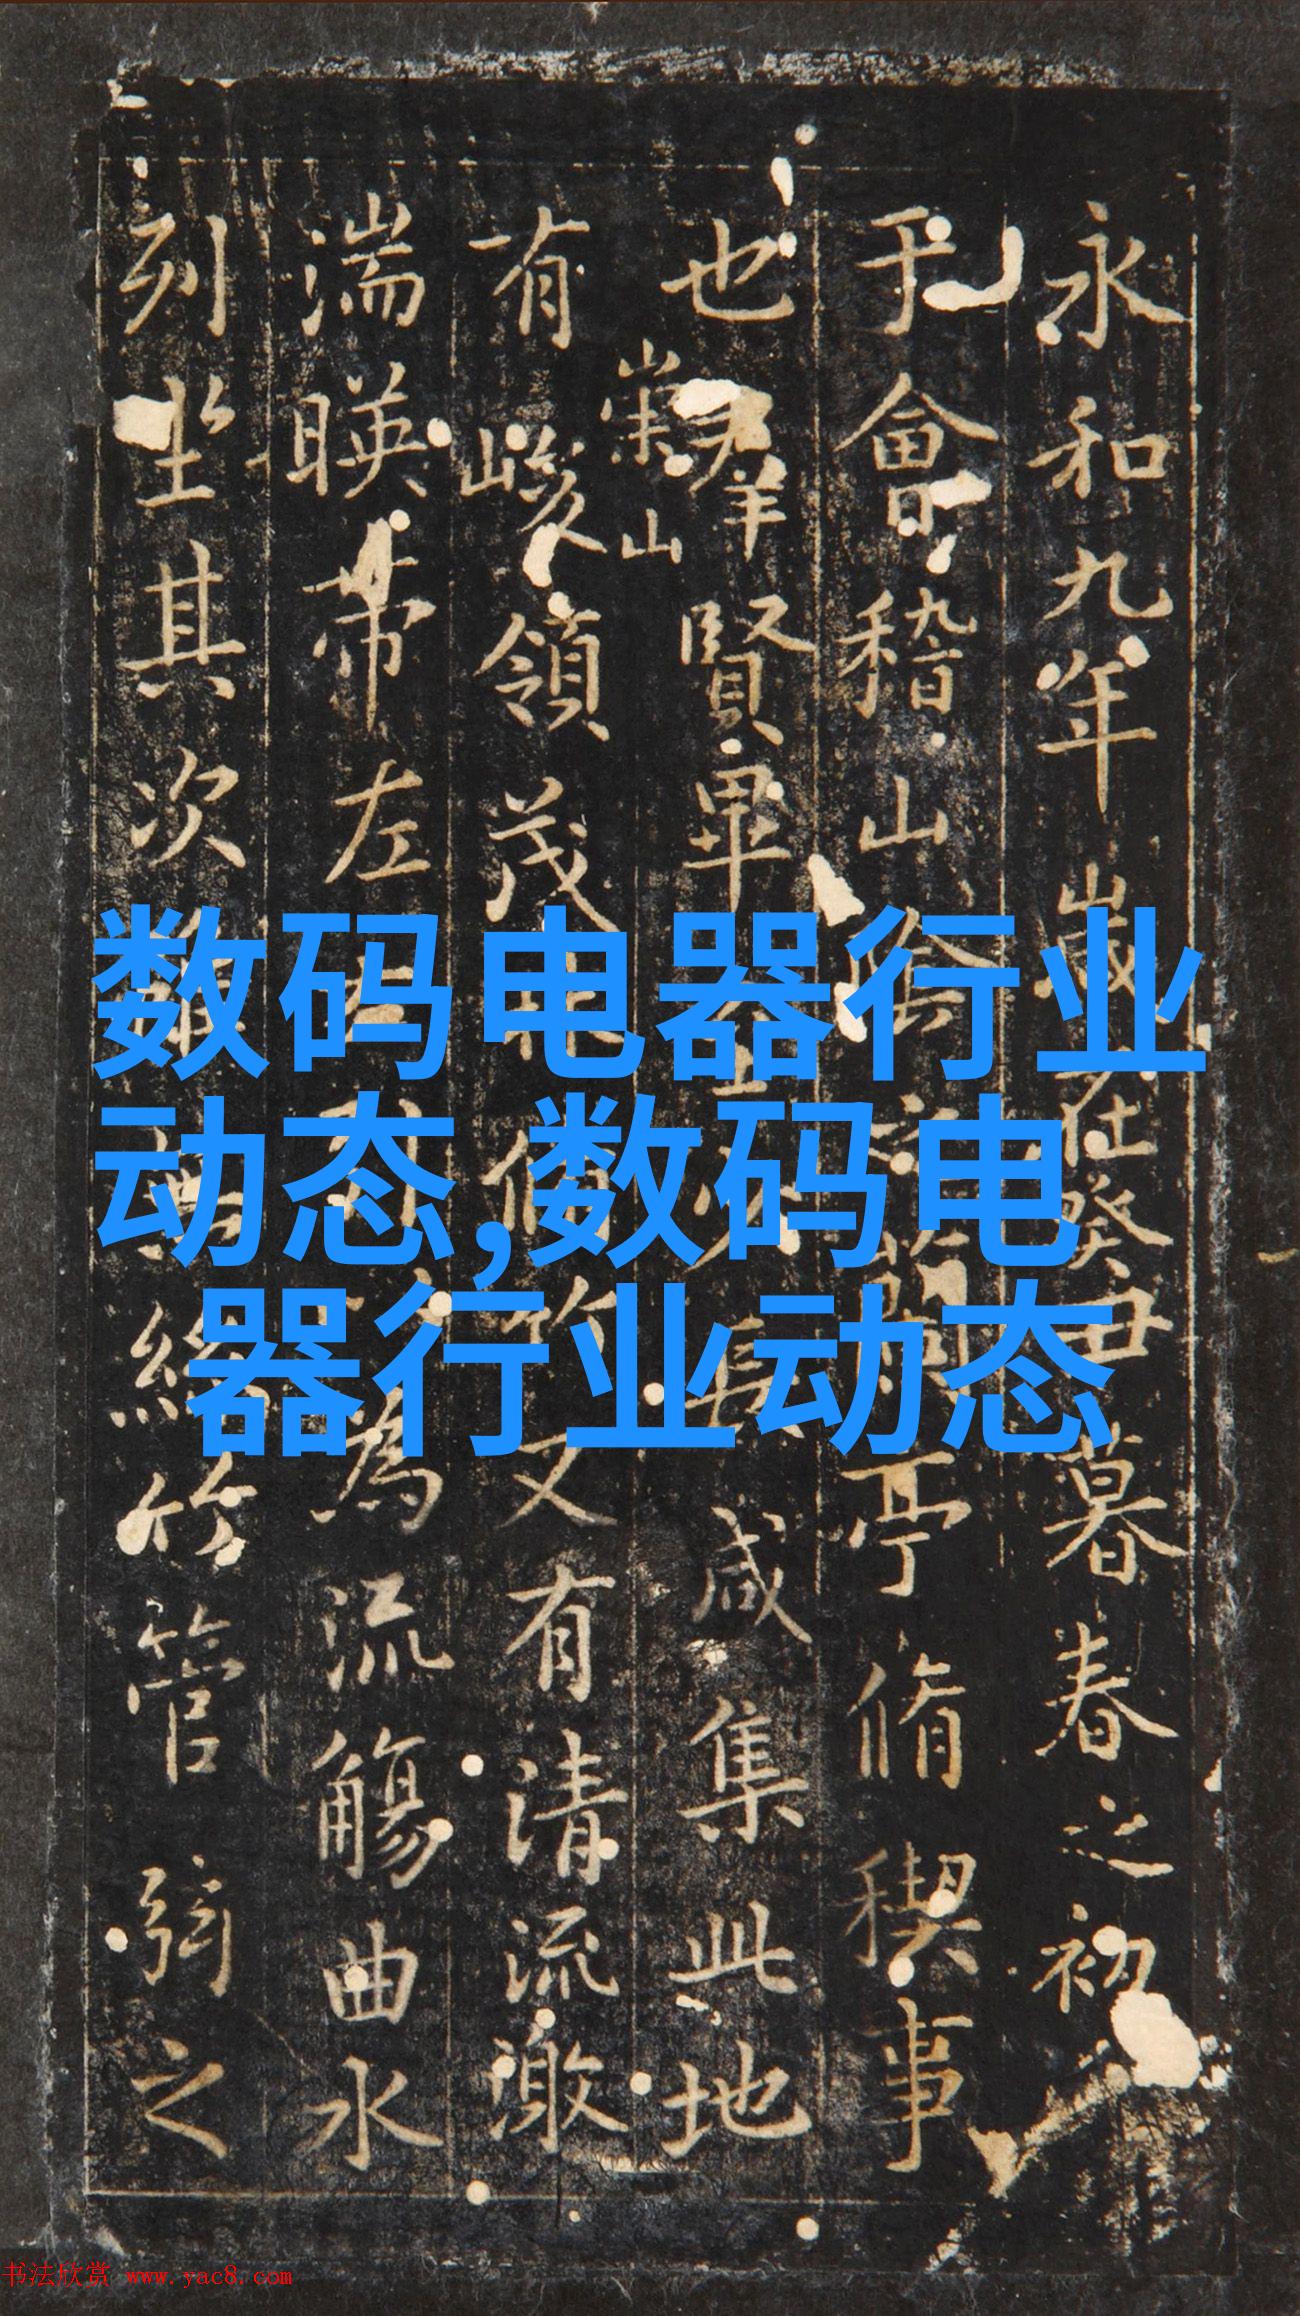 永和九年歲在癸丑暮春之初
于會稽山陰之蘭亭脩稧事
也群賢畢至少長咸集此地
崇山
有峻領茂林脩竹又有清流激
湍暎帶左右引以為流觴曲水
列坐其次雖無絲竹管弦之
数码电器行业
动态,数码电
器行业动态
书法欣赏 www.yac8.com